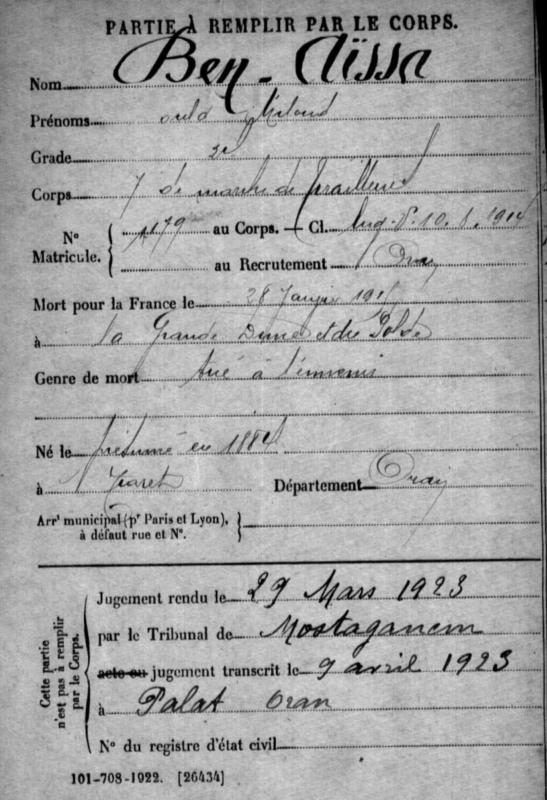 PARTIE À REMPLIR PAR LE CORPS.
Nom Ben-Aïssa
Prénoms ould Miloud
Grade 2e
Corps 7 de marche de tirailleurs
N° Matricule. 1179 au Corps. — Cl. 10. 1. 1914
au Recrutement Oran
Mort pour la France le 28 Janvier 191
à la Grande Dune
Genre de mort tué à l'ennemi
Né le présumé en 1884
à Tiaret Département Oran
Arrt municipal (pr Paris et Lyon), à défaut rue et N°.
Cette partie n'est pas à remplir par le Corps.
Jugement rendu le 29 Mars 1923
par le Tribunal de Mostaganem
acte ou jugement transcrit le 9 avril 1923
à Palat Oran
N° du registre d'état civil
101-708-1922. [26434]